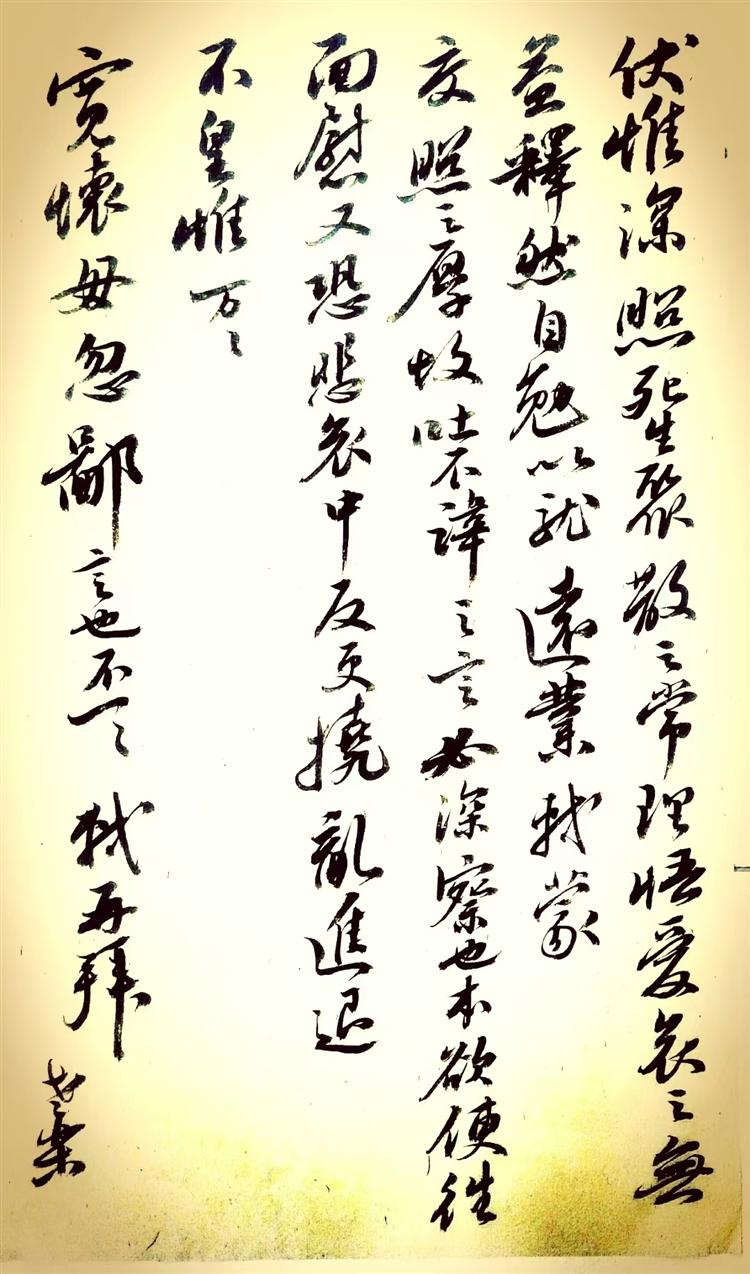 伏惟深照死生聚散之常理悟憂哀之無
益釋然自勉以就遠業軾蒙
交照之厚故吐不諱之言必深察也本欲便往
面慰又恐悲哀中反更撓亂進退
不皇惟万〻
寬懷毋忽鄙言也不一〻 軾再拜